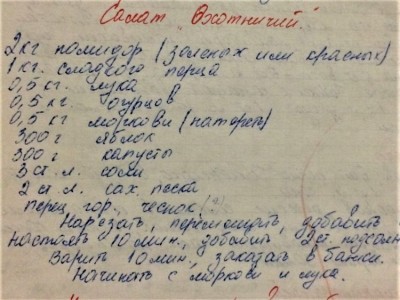 Салат "Охотничий".
2 кг помидор (зеленых или красных)
1 кг. сладкого перца
0,5 кг. лука
0,5 кг. огурцов
0,5 кг моркови (натереть)
300 г яблок
300 г капусты
3 ст. л. соли
2 ст. л. сах. песка
перец гор., чеснок
Нарезать, перемешать, добавить
настоять 10 мин., добавить 2 ст. подсолн
Варить 10 мин., закатать в банки.
Начинать с моркови и лука.